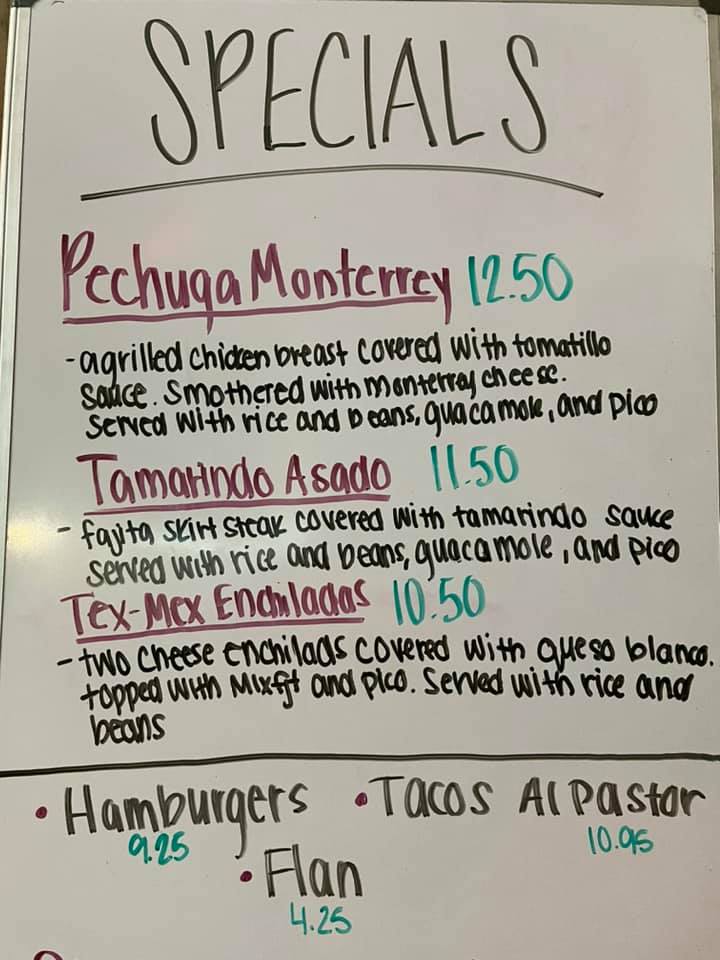 SPECIALS
Pechuga Monterrey 12.50
- a grilled chicken breast covered with tomatillo
sauce. Smothered with monterray cheese.
Served with rice and beans, guacamole, and pico
Tamarindo Asado 11.50
- fajita skirt steak covered with tamarindo sauce
served with rice and beans, guacamole, and pico
Tex-Mex Enchiladas 10.50
- two cheese enchilads covered with queso blanco.
topped with Mixfjt and pico. Served with rice and
beans
• Hamburgers • Tacos Al Pastor
9.25 10.95
• Flan
4.25